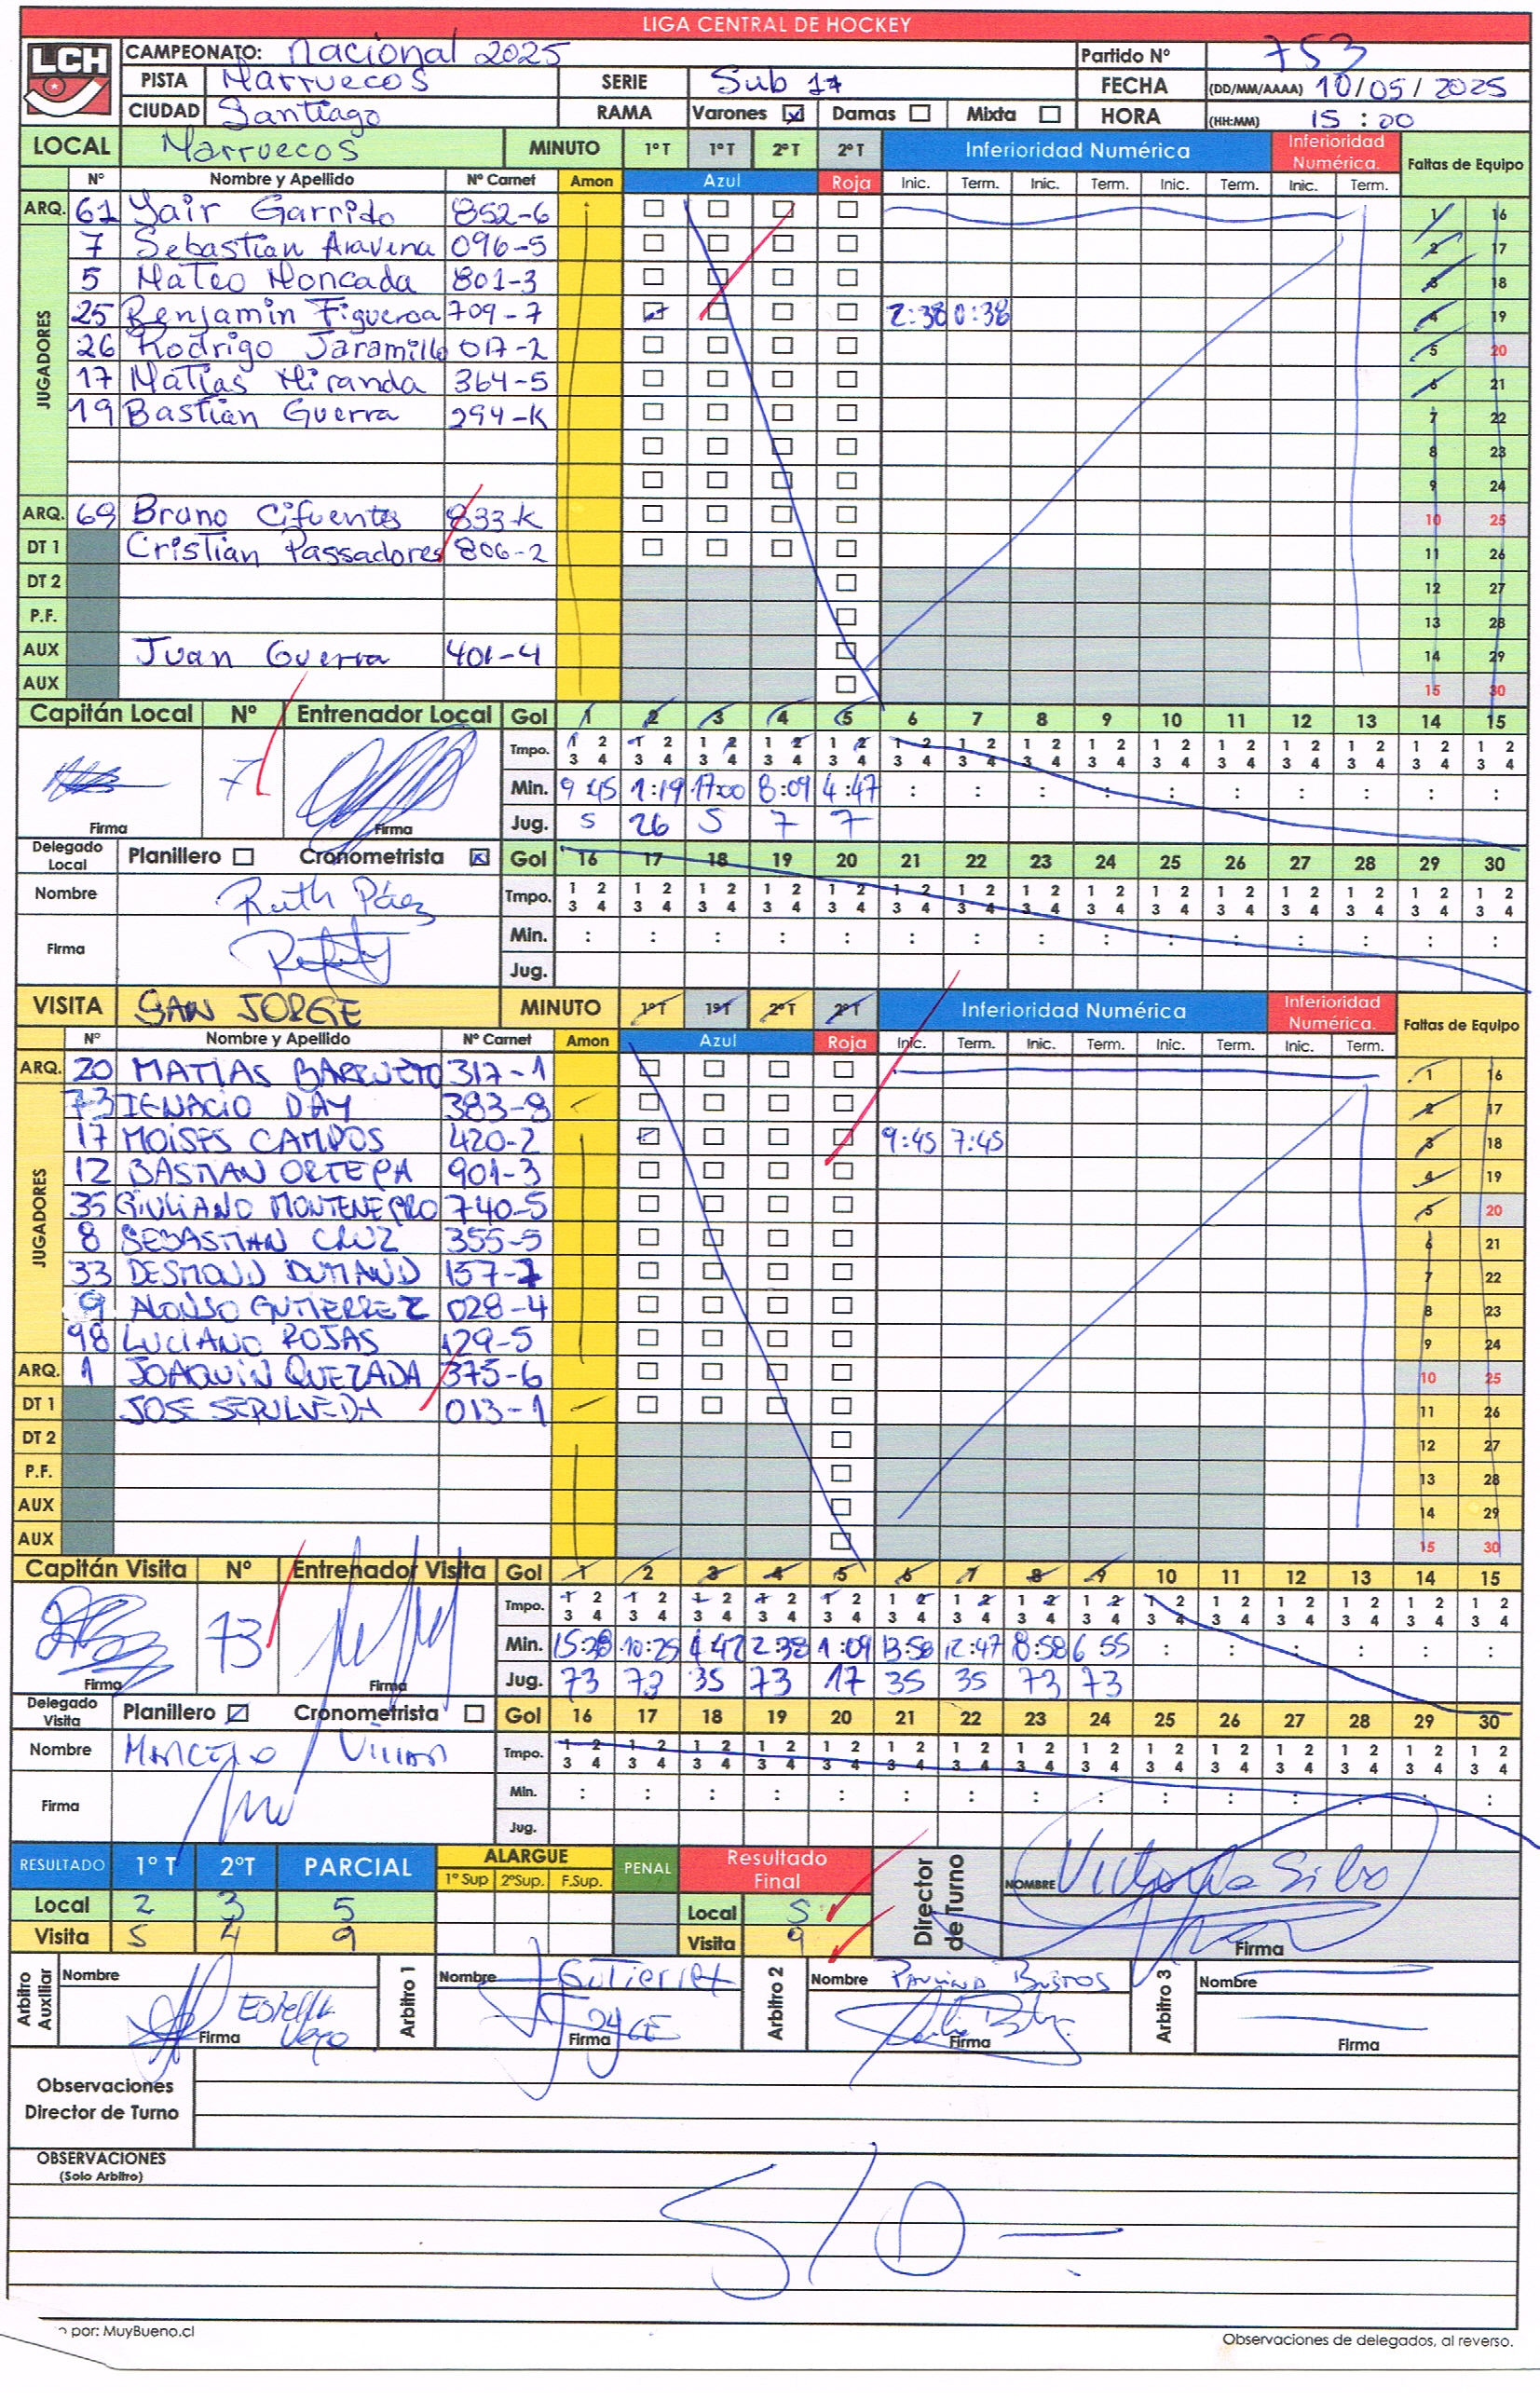 LIGA CENTRAL DE HOCKEY
LCH
CAMPEONATO: Nacional 2025 Partido Nº 753
PISTA Marruecos SERIE Sub 17 FECHA (DD/MM/AAAA) 10/05/2025
CIUDAD Santiago RAMA Varones Damas Mixta HORA (HH:MM) 15:00
LOCAL Marruecos MINUTO 1º T 1º T 2º T 2º T Inferioridad Numérica Inferioridad Numérica. Faltas de Equipo
Nº Nombre y Apellido Nº Carnet Amon Azul Roja Inic. Term. Inic. Term. Inic. Term. Inic. Term.
ARQ. 61 Yair Garrido 852-6 1 16
JUGADORES
7 Sebastian Aravena 096-5 2 17
5 Mateo Moncada 801-3 3 18
25 Benjamin Figueroa 709-7 2:38 0:38 4 19
26 Rodrigo Jaramillo 017-2 5 20
17 Matias Miranda 364-5 6 21
19 Bastian Guerra 294-K 7 22
8 23
9 24
ARQ. 69 Bruno Cifuentes 833-K 10 25
DT 1 Cristian Passadores 806-2 11 26
DT 2 12 27
P.F. 13 28
AUX Juan Guerra 401-4 14 29
AUX 15 30
Capitán Local Nº Entrenador Local Gol 1 2 3 4 5 6 7 8 9 10 11 12 13 14 15
Tmpo. 1 2 1 2 1 2 1 2 1 2 1 2 1 2 1 2 1 2 1 2 1 2 1 2 1 2 1 2 1 2
3 4 3 4 3 4 3 4 3 4 3 4 3 4 3 4 3 4 3 4 3 4 3 4 3 4 3 4 3 4
7 Min. 9:45 1:19 17:00 8:09 4:47 : : : : : : : : : :
Firma Firma Jug. 5 26 5 7 7
Delegado Local Planillero Cronometrista Gol 16 17 18 19 20 21 22 23 24 25 26 27 28 29 30
Nombre Ruth Páez Tmpo. 1 2 1 2 1 2 1 2 1 2 1 2 1 2 1 2 1 2 1 2 1 2 1 2 1 2 1 2 1 2
3 4 3 4 3 4 3 4 3 4 3 4 3 4 3 4 3 4 3 4 3 4 3 4 3 4 3 4 3 4
Firma Min. : : : : : : : : : : : : : : :
Jug.
VISITA SAN JORGE MINUTO 1º T 1º T 2º T 2º T Inferioridad Numérica Inferioridad Numérica. Faltas de Equipo
Nº Nombre y Apellido Nº Carnet Amon Azul Roja Inic. Term. Inic. Term. Inic. Term. Inic. Term.
ARQ. 20 MATIAS BARRUETO 317-1 1 16
JUGADORES
73 IGNACIO DAY 383-8 2 17
17 MOISES CAMPOS 420-2 9:45 7:45 3 18
12 BASTIAN ORTEGA 901-3 4 19
35 GIULIANO MONTENEGRO 740-5 5 20
8 SEBASTIAN CRUZ 355-5 6 21
33 DESMOND DUMAND 157-7 7 22
9 ALONSO GUTIERREZ 028-4 8 23
98 LUCIANO ROJAS 129-5 9 24
ARQ. 1 JOAQUIN QUEZADA 375-6 10 25
DT 1 JOSE SEPULVEDA 013-1 11 26
DT 2 12 27
P.F. 13 28
AUX 14 29
AUX 15 30
Capitán Visita Nº Entrenador Visita Gol 1 2 3 4 5 6 7 8 9 10 11 12 13 14 15
Tmpo. 1 2 1 2 1 2 1 2 1 2 1 2 1 2 1 2 1 2 1 2 1 2 1 2 1 2 1 2 1 2
3 4 3 4 3 4 3 4 3 4 3 4 3 4 3 4 3 4 3 4 3 4 3 4 3 4 3 4 3 4
73 Min. 15:28 10:25 4:42 2:38 1:09 13:58 12:47 8:58 6 55 : : : : : :
Firma Firma Jug. 73 73 35 73 17 35 35 73 73
Delegado Visita Planillero Cronometrista Gol 16 17 18 19 20 21 22 23 24 25 26 27 28 29 30
Nombre MARCELO Tmpo. 1 2 1 2 1 2 1 2 1 2 1 2 1 2 1 2 1 2 1 2 1 2 1 2 1 2 1 2 1 2
3 4 3 4 3 4 3 4 3 4 3 4 3 4 3 4 3 4 3 4 3 4 3 4 3 4 3 4 3 4
Firma Min. : : : : : : : : : : : : : : :
Jug.
RESULTADO 1º T 2ºT PARCIAL ALARGUE PENAL Resultado Final Director de Turno
1º Sup 2ºSup. F.Sup. NOMBRE Victoria Silva
Local 2 3 5 Local 5
Visita 5 4 9 Visita 9 Firma
Arbitro Auxiliar Nombre Estella Vega Firma
Arbitro 1 Nombre J Gutierrez Firma
Arbitro 2 Nombre Paulina Bustos Firma
Arbitro 3 Nombre Firma
Observaciones
Director de Turno
OBSERVACIONES
(Solo Arbitro)
S/O -
o por: MuyBueno.cl Observaciones de delegados, al reverso.